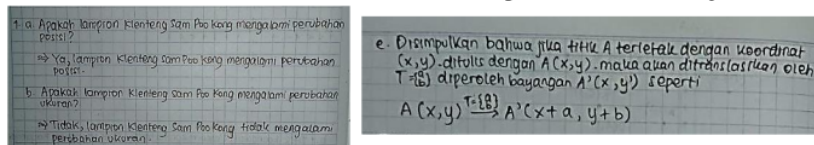 1. a. Apakah lampion Klenteng Sam Poo Kong mengalami perubahan
posisi?
⇒ Ya, lampion Klenteng Sam Poo Kong mengalami perubahan
posisi.
b. Apakah lampion Klenteng Sam Poo Kong mengalami perubahan
ukuran?
⇒ Tidak, lampion Klenteng Sam Poo Kong tidak mengalami
perubahan ukuran.
e. Disimpulkan bahwa jika titik A terletak dengan koordinat
(x,y). ditulis dengan A(x,y). maka akan ditranslasikan oleh
T={a b} diperoleh bayangan A'(x,y') seperti
A (x,y) T={a b} → A'(x+a, y+b)